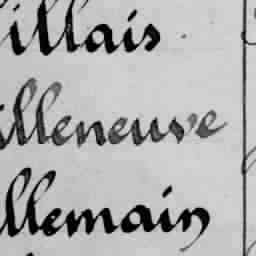 illais
illeneuve
llemain